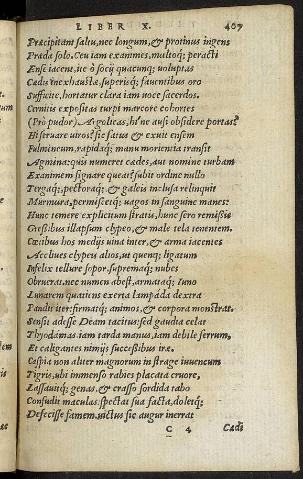 LIBER X. 407
Præcipitant saltu, nec longum, & protinus ingens
Præda solo. Ceu iam exanimes, multoq; peracti
Ense iacent, ite ô socij quæcunq; uoluptas
Cædis inexhaustæ, superisq; fauentibus oro
Sufficite, hortatur clara iam uoce sacerdos.
Cernitis expositas turpi marcore cohortes
(Prò pudor) Argolicas, hi'ne ausi obsidere portas?
Hi seruare uiros? sic fatus & exuit ensem
Fulmineum, rapidaq; manu morientia transit
Agmina: quis numeret cædes, aut nomine turbam
Exanimem signare queat? subit ordine nullo
Tergaq; pectoraq; & galeis inclusa relinquit
Murmura, permiscetq; uagos in sanguine manes:
Hunc temere explicitum stratis, hunc sero remissis
Gressibus illapsum clypeo, & male tela tenentem.
Cœtibus hos medijs uina inter, & arma iacentes
Acclines clypeis alios, ut quenq; ligatum
Infelix tellure sopor, supremaq; nubes
Obruerat. nec numen abest, armataq; Iuno
Lunarem quatiens exerta lampada dextra
Pandit iter: firmatq; animos, & corpora monstrat.
Sensit adesse Deam tacitus: sed gaudia celat
Thyodamas: iam tarda manus, iam debile ferrum,
Et caligantes nimijs successibus iræ.
Caspia non aliter magnorum in strage iuuencum
Tigris, ubi immenso rabies placata cruore,
Lassauitq; genas, & crasso sordida tabo
Confudit maculas. spectat sua facta, doletq;
Defecisse famem. uictus sic augur inerrat
C 4 Cædi